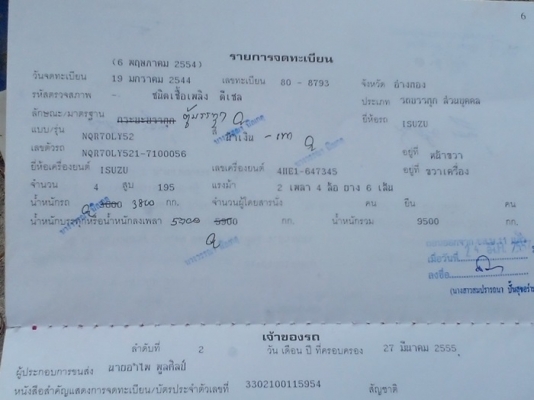 6
รายการจดทะเบียน
(6 พฤษภาคม 2554)
วันจดทะเบียน 19 มกราคม 2544 เลขทะเบียน 80 - 8793 จังหวัด อ่างทอง
รหัสตรวจสภาพ - ชนิดเชื้อเพลิง ดีเซล ประเภท รถบรรทุก ส่วนบุคคล
ลักษณะ/มาตรฐาน กระบะบรรทุก ตู้บรรทุก ยี่ห้อรถ ISUZU
แบบ/รุ่น NQR70LY52 สี น้ำเงิน - เทา
เลขตัวรถ NQR70LY521-7100056 อยู่ที่ คัสซีขวา
ยี่ห้อเครื่องยนต์ ISUZU เลขเครื่องยนต์ 4HE1-647345 อยู่ที่ ขวาเครื่อง
จำนวน 4 สูบ 195 แรงม้า 2 เพลา 4 ล้อ ยาง 6 เส้น
น้ำหนักรถ 3800 กก. จำนวนผู้โดยสารนั่ง คน ยืน คน
น้ำหนักบรรทุกหรือน้ำหนักลงเพลา 5000 กก. น้ำหนักรวม 9500 กก.
เมื่อวันที่
ลงชื่อ
เจ้าของรถ
ลำดับที่ 2 วัน เดือน ปี ที่ครอบครอง 27 มีนาคม 2555
ผู้ประกอบการขนส่ง นายอำไพ พูลศิลป์
หนังสือสำคัญแสดงการจดทะเบียน/บัตรประจำตัวเลขที่ 3302100115954 สัญชาติ